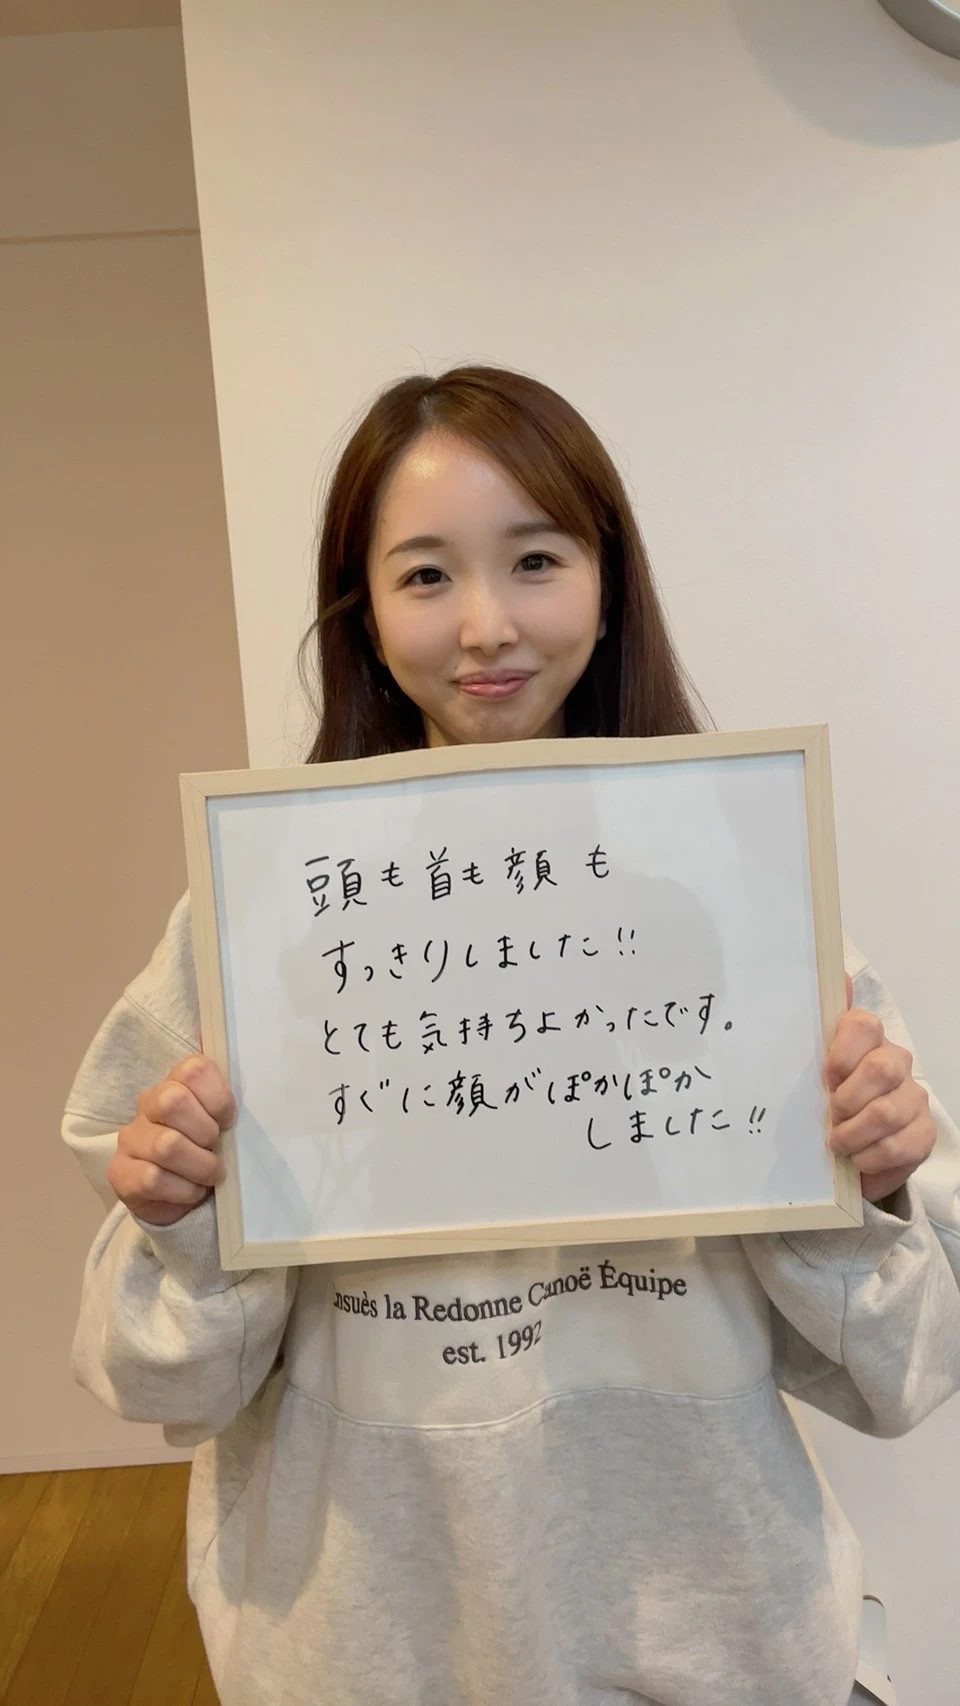 頭も首も顔も
すっきりしました!!
とても気持ちよかったです。
すぐに顔がぽかぽか
しました!!
la Redonne Canoë Équipe
est. 1992